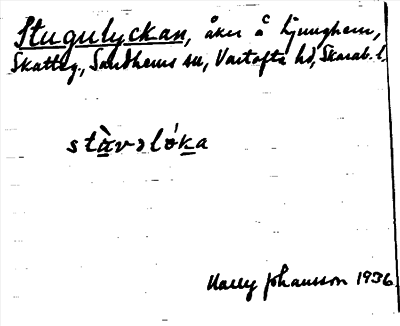 Stugulyckan, åker å Ljunghem,
Skatteg., Sandhems sn, Vartofta hd, Skarab. l.
stàvəlóka
Harry Johansson 1936.